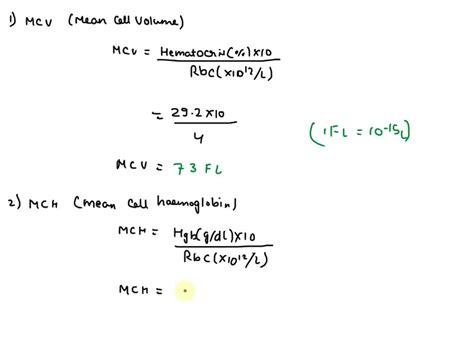 1) MCV (Mean Cell Volume)
MCV = Hematocrin(%)×10
Rbc(×10¹²/L)
= 29.2×10
4
(1FL = 10⁻¹⁵L)
MCV = 73 FL
2) MCH (Mean Cell haemoglobin)
MCH = Hgb(g/dl)×10
Rbc(×10¹²/L)
MCH =